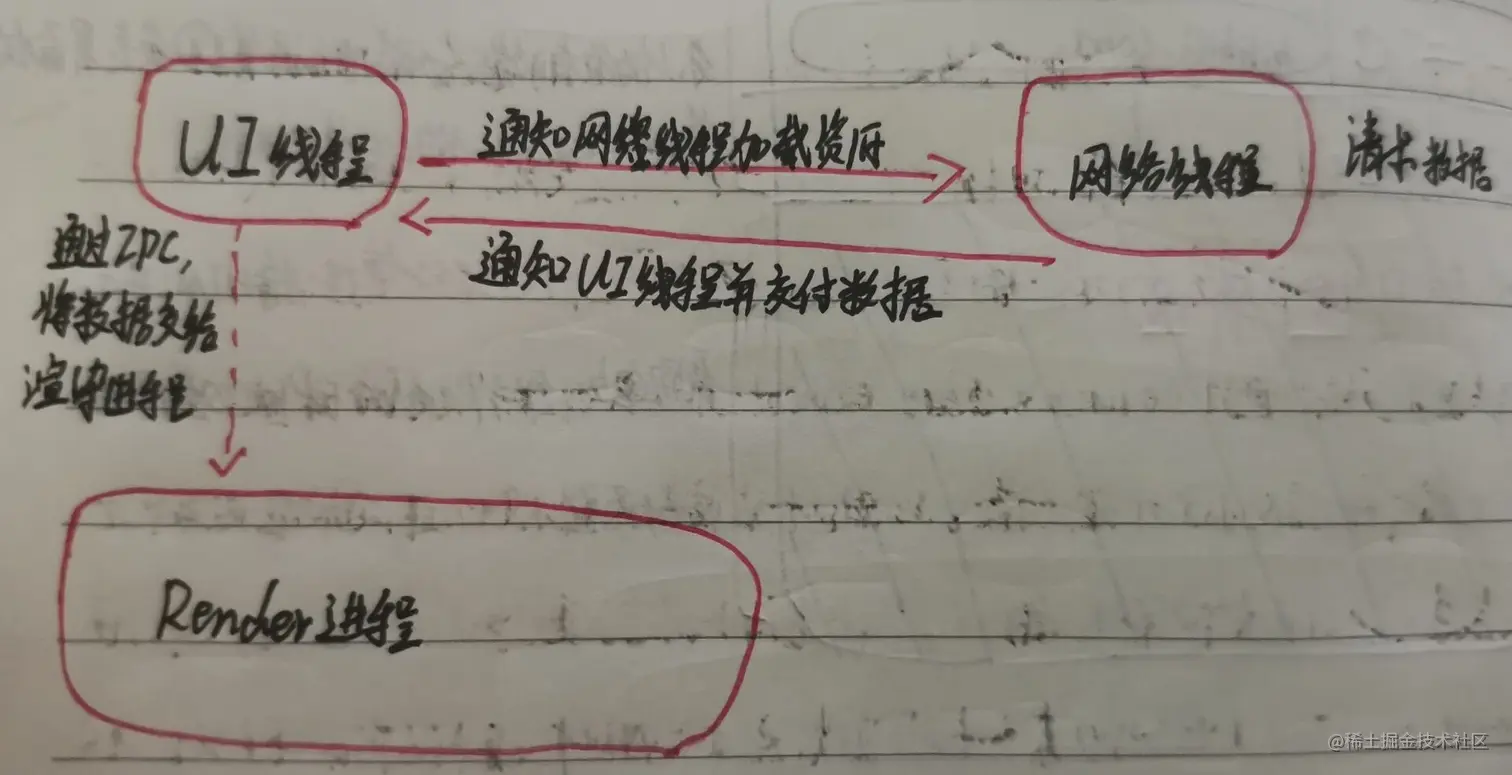 UI线程
通知网络线程加载资府
网络线程
请求数据
通知UI线程并交付数据
通过IPC,
将数据交给
渲染进程
Render进程
@稀土掘金技术社区